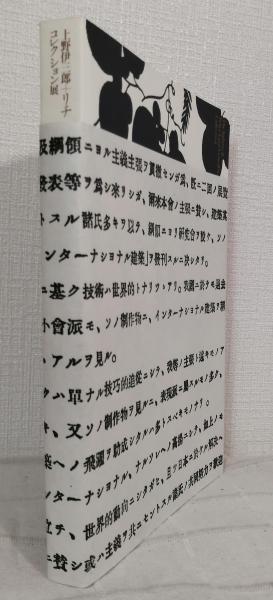 上野伊三郎+リナ
コレクション展
及綱領ニヨル主義主張ヲ貫徹センガ爲、既ニ二囘ノ展覽
發表等ヲ爲シ來リシガ、爾來本會ノ主張ニ賛シ、建築家
トスル諸氏多キヲ以テ、綱領ニヨリ研究會ヲ設ケ、ソノ
ンターナショナル建築』ヲ發刊スルニ決シタリ。
ニ基ク技術ハ世界的トナリツヽアリ。我國ニ於テモ過去
小會派モ、ソノ制作物ニ、インターナショナル建築ヲ
トアルヲ見ル。
クハ單ナル技巧的追從ニシテ、我等ノ主張ト遠キモノア
オ、又ソノ制作物ヲ見ルニ、表現派ニ屬スルモノ多ク、
ヘノ飛躍ヲ助成シタルハ多トスベキモノナリ。
ンターナショナル、ナルソレヘノ
テ、世界的動向ニシタガヒ、且ツ日本ニ於ケル
ニ賛シ或ハ主義ヲ共ニセントスル諸氏ノ共同努力ヲ